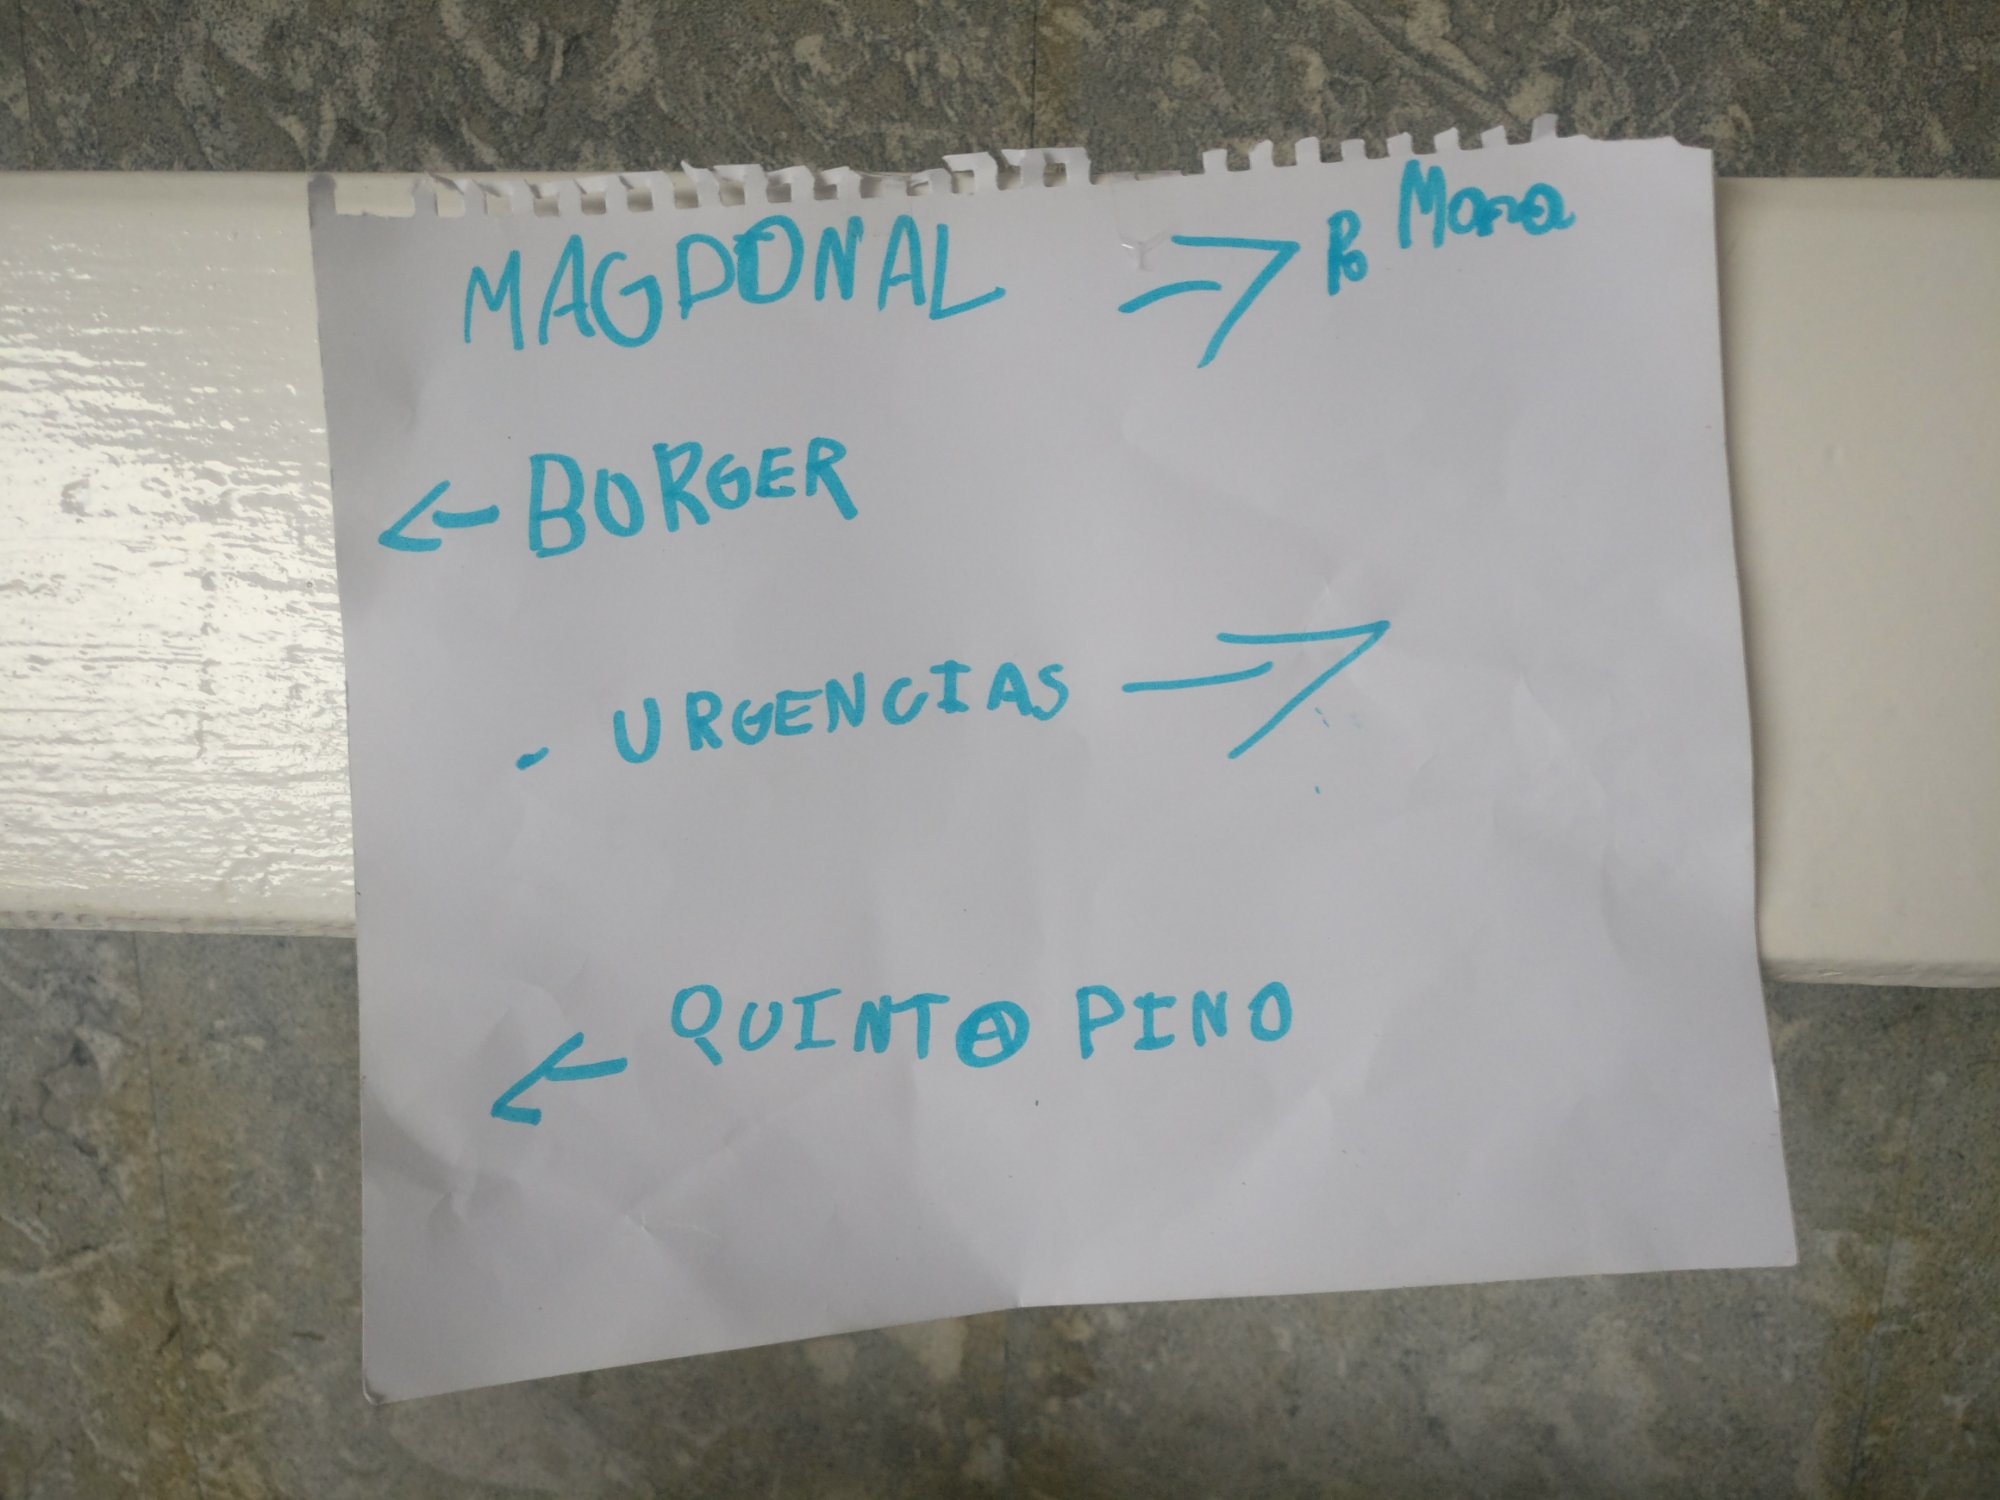 MAGDONAL → Pº Mora
← BORGER
- URGENCIAS →
← QUINTO PINO